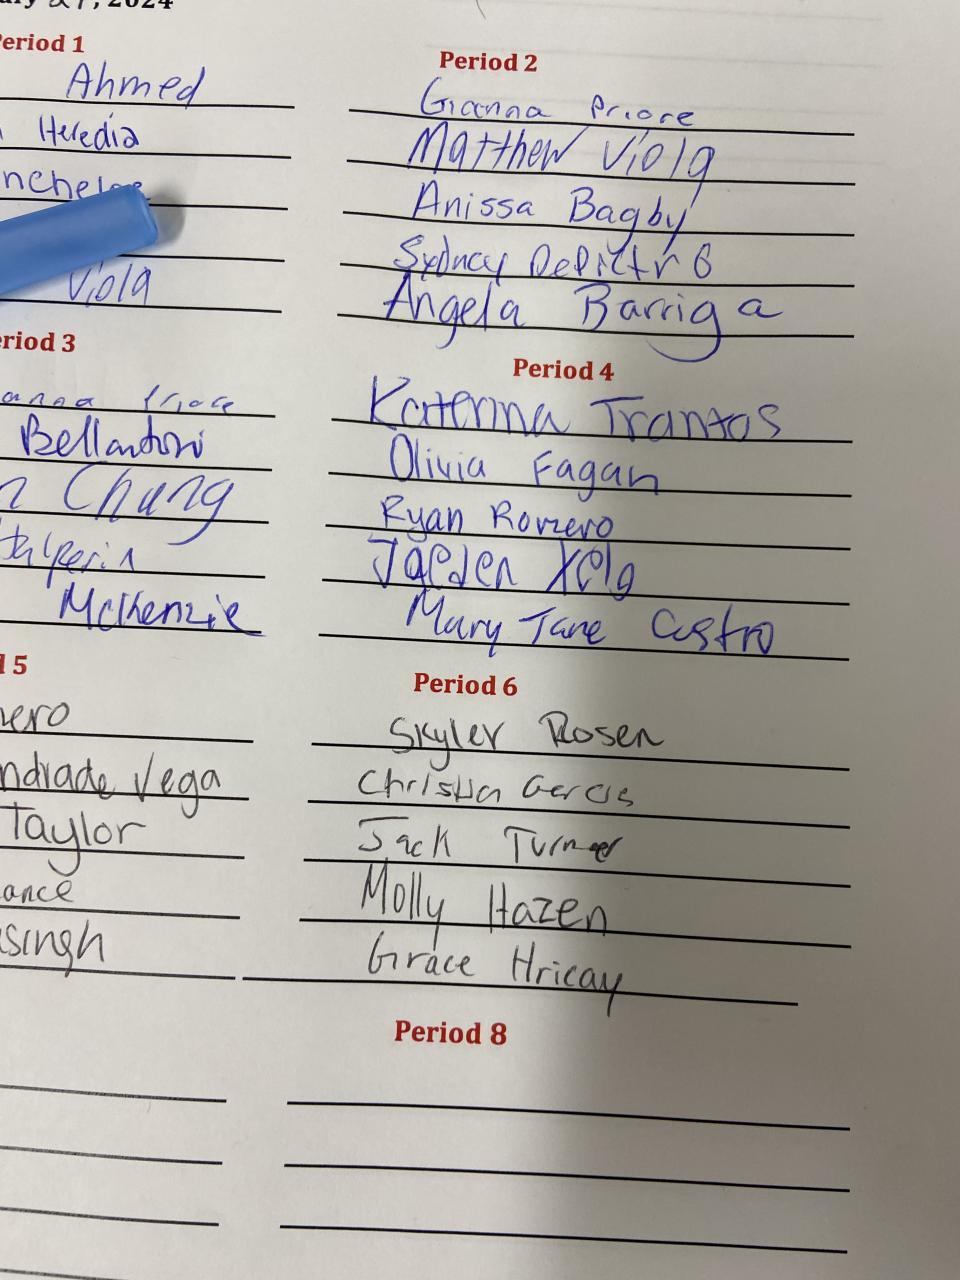 2024
Period 1
Ahmed
Heredia
Viola
Period 2
Gianna Priore
Matthew Viola
Anissa Bagby
Sydney
Angela Barriga
Period 3
Priore
Bellantoni
Chung
Halperin
McKenzie
Period 4
Katerina Trantos
Olivia Fagan
Ryan Romero
Jaeden Xela
Mary Jane Castro
5
Andrade Vega
Taylor
Period 6
Skyler Rosen
Christian Garcia
Jack Turner
Molly Hazen
Grace Hricay
Period 8